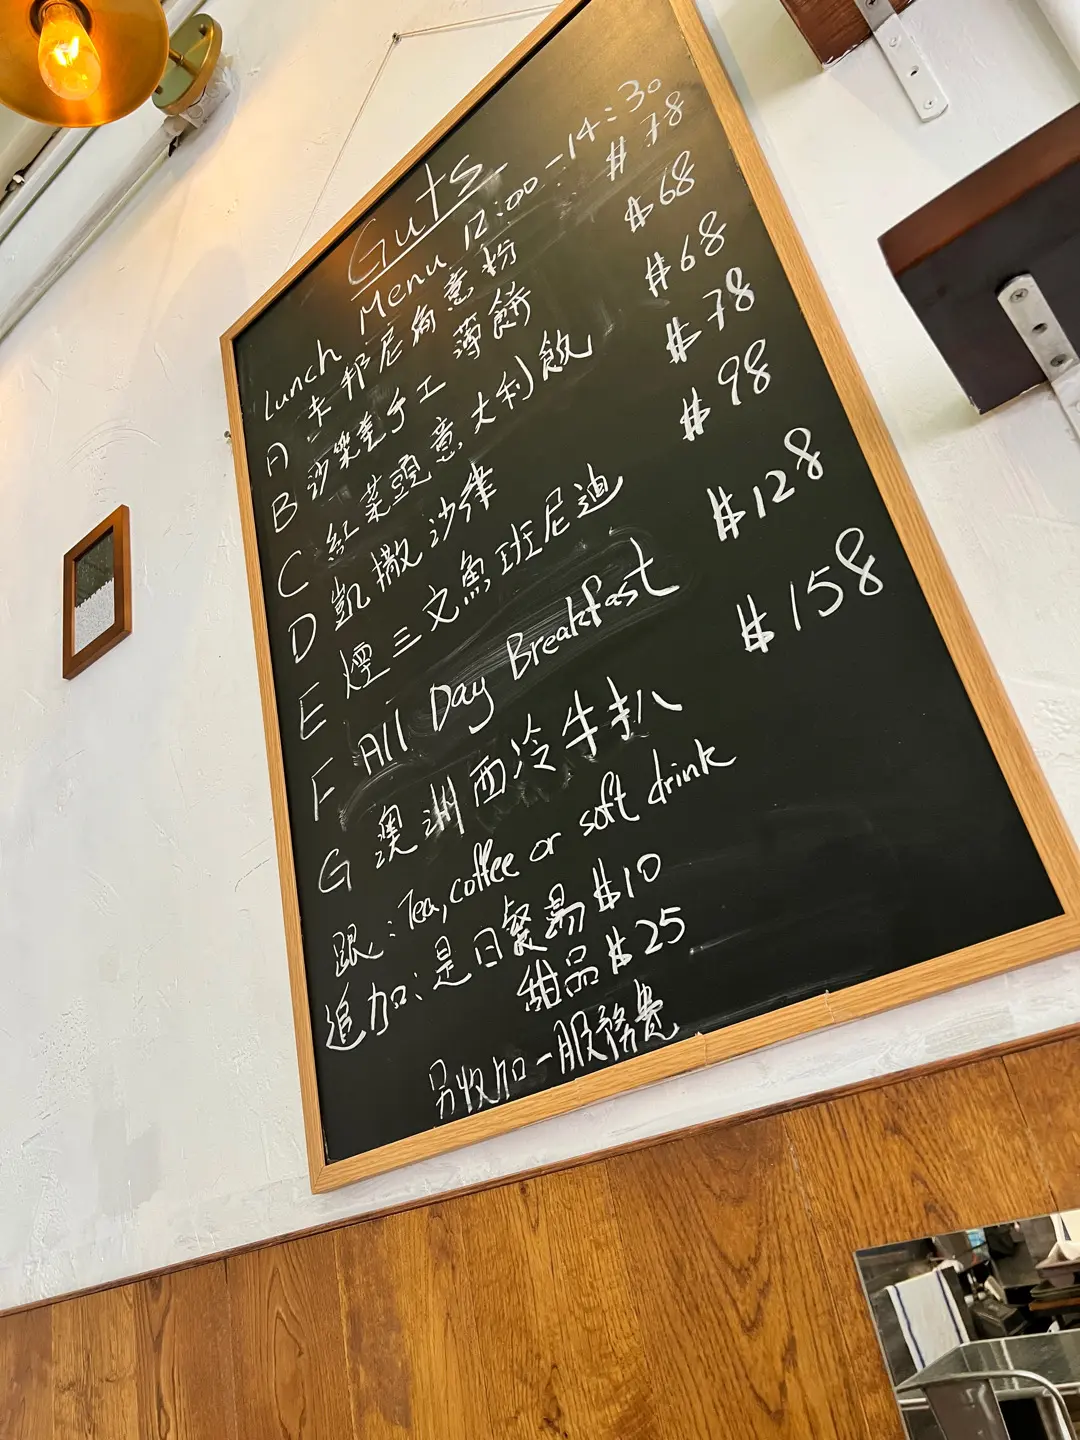 Guts
Lunch Menu 12:00-14:30
A 卡邦尼烏意粉 $78
B 沙樂美手工薄餅 $68
C 紅菜頭意大利飯 $68
D 凱撒沙律 $78
E 煙三文魚班尼迪 $98
F All Day Breakfast $128
G 澳洲西冷牛扒 $158
跟:Tea, coffee or soft drink
追加:是日餐湯 $10
甜品 $25
另收加一服務費